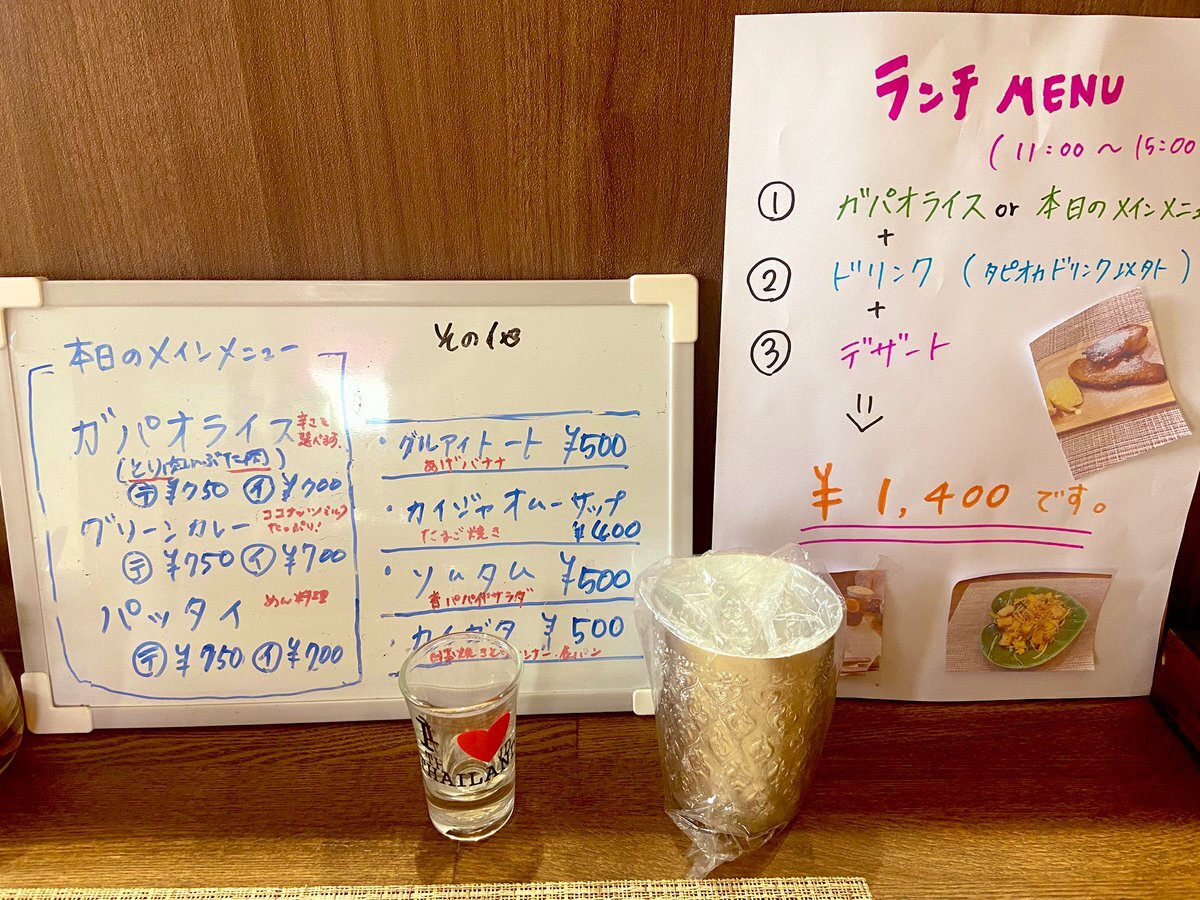 本日のメインメニュー
ガパオライス 辛さも
選べます。
(とり肉 ぶた肉)
テ ¥750 イ ¥700
グリーンカレー ココナッツミルク
たっぷり!
テ ¥750 イ ¥700
パッタイ めん料理
テ ¥750 イ ¥700
その他
・グルアイトート ¥500
あげバナナ
・カイジャオムーサップ
たまご焼き ¥400
・ソムタム ¥500
青パパイヤサラダ
・カイガタ ¥500
ランチ MENU
(11:00 ~ 15:00
① ガパオライス or 本日のメインメニュ
+
② ドリンク (タピオカドリンク以外)
+
③ デザート
¥1,400 です。
I
THAILAND